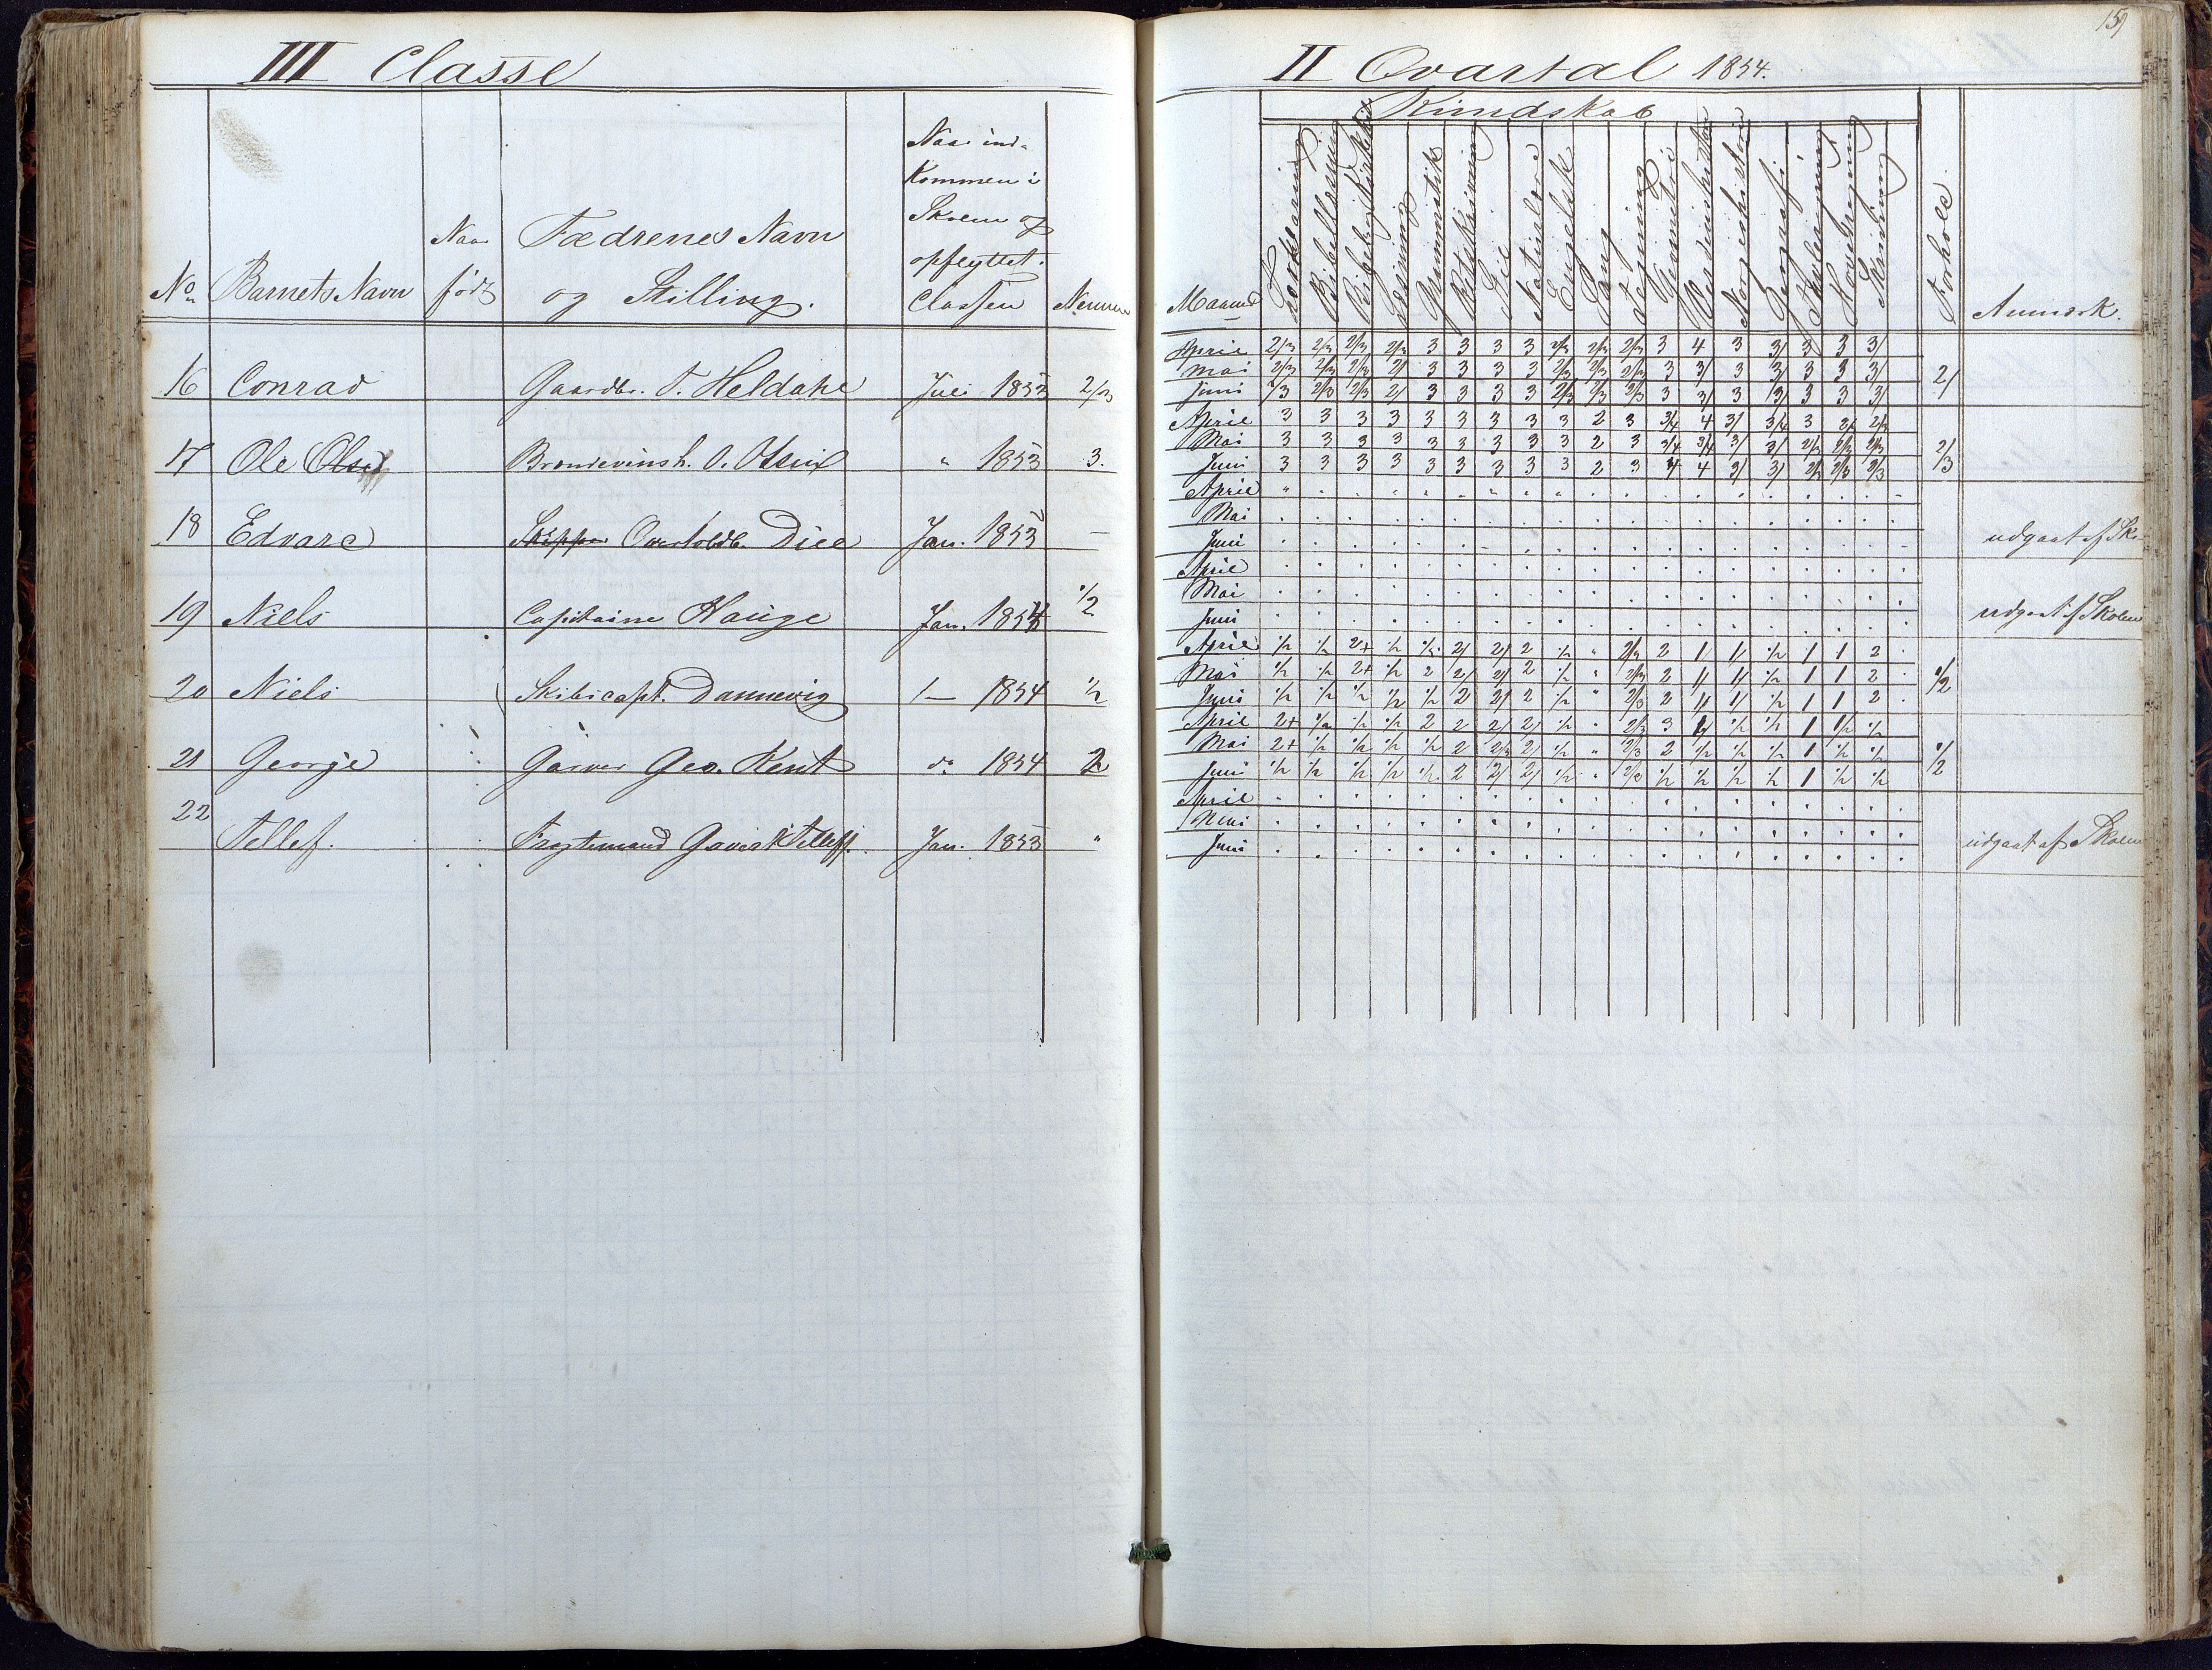 III Classe
No
Barnets Navn
Naar
født
Fædrenes Navn
og Stilling.
Naar ind-
kommen i
Skolen og
opflyttet.
Classen
Nemme
16 Conrad Gaardbr. T. Heldahl Juli 1853 2/3
17 Ole Olsen Brændevinsh. O. " 1853 3.
18 Edvard Skipper Overtoldb. Jan. 1853 —
19 Niels Capitaine Hauge Jan. 1854 1/2
20 Niels Skibscapt. Dannevig 1— 1854 1/2
21 George Garver Geo. Kent do 1854 2
22 Tellef. Tellefs. Jan. 1853 "
159
II Qvartal 1854.
Kundskab
Maaned
Forklaring
Bibellæsning
Læsning
Grammatik
Retskrivning
Stil
Naturlære
Engelsk
Sang
Tegning
Geometri
Verdenshistorie
Norgeshistorie
Geografi
Tavleregning
Hovedregning
Skrivning
Forhold.
Anmærk.
April 2/3 2/3 2/3 2/3 3 3 3 3 2/3 2/3 2/3 3 4 3 3/ 3 3 3/
Mai 2/3 2/3 2/3 2/ 3 3 3 3 2/3 2/3 2/3 3 3/ 3 3/ 3 3 3/ 2/
Juni 2/3 2/3 2/3 2/ 3 3 3 3 2/3 2/3 2/3 3 3/ 3 3/ 3 3 3/
April 3 3 3 3 3 3 3 3 3 2 3 3/4 4 3/ 3/4 3 2/ 2/3
Mai 3 3 3 3 3 3 3 3 3 2 3 3/4 3/4 3/ 3/ 2/3 2/3 2/3 2/3
Juni 3 3 3 3 3 3 3 3 3 2 3 4 4 3/ 3/ 2/3 2/3 2/3
April
Mai
Juni udgaaet af Sko-
April
Mai
Juni udgaaet af Skolen
April 1/2 1/2 2+ 1/2 1/2 2/ 2/ 2 1/2 " 2/3 2 1/ 1/ 1/2 1 1 2
Mai 1/2 1/2 2+ 1/2 2 2/ 2/ 2 1/2 " 2/3 2 1/ 1/ 1/2 1 1 2 1/2
Juni 1/2 1/2 1/2 1/2 1/2 2 2/ 2 1/2 " 2/3 2 1/ 1/ 1/2 1 1 2
April 2+ 1/2 1/2 1/2 2 2 2/ 2/ 1/2 " 2/3 3 1/ 1/2 1/2 1 1/2 1/2
Mai 2+ 1/2 1/2 1/2 1/2 2 2/3 2/ 1/2 " 2/3 2 1/2 1/2 1/2 1 1/2 1/2 1/2
Juni 1/2 1/2 1/2 1/2 1/2 2 2/ 2/ 1/2 " 2/3 1/2 1/2 1/2 1/2 1 1/2 1/2
April
Mai
Juni udgaaet af Skolen